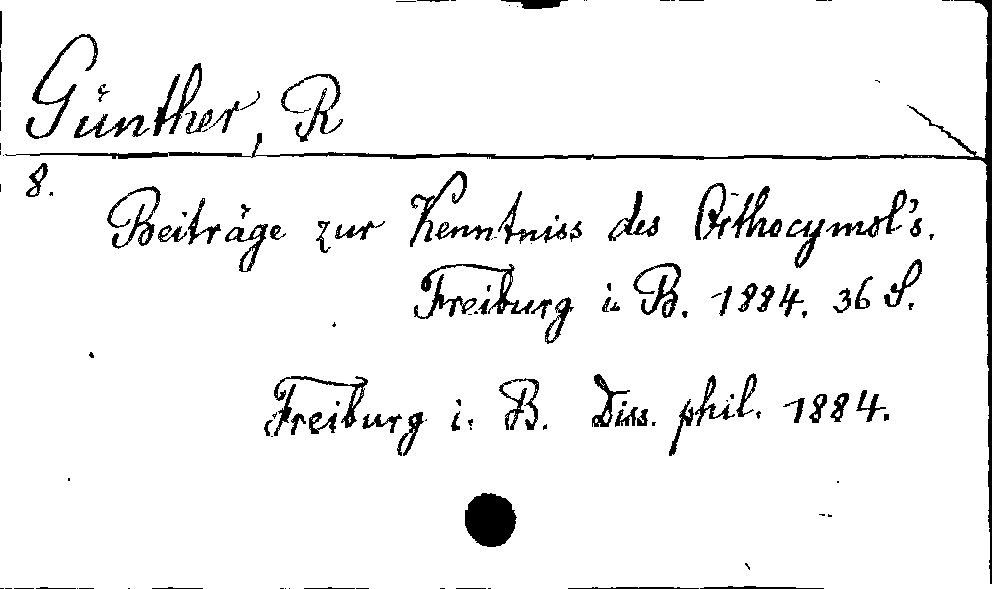 Günther, R
8.
Beiträge zur Kenntniss des Orthocymol's.
Freiburg i. B. 1884. 36 S.
Freiburg i. B. Diss. phil. 1884.